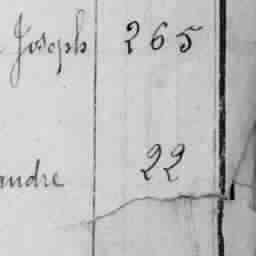 Joseph 265
andre 22